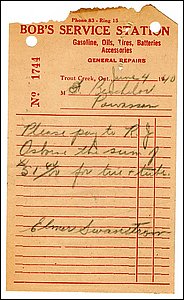 Phone 83 - Ring 15
BOB'S SERVICE STATION
Gasoline, Oils, Tires, Batteries
Accessories
GENERAL REPAIRS
Trout Creek, Ont. June 4 19
No 1744
Powassan
Please pay to R J
Osborne the sum of
$1 for tire & tube.
Elmer Swanstrom